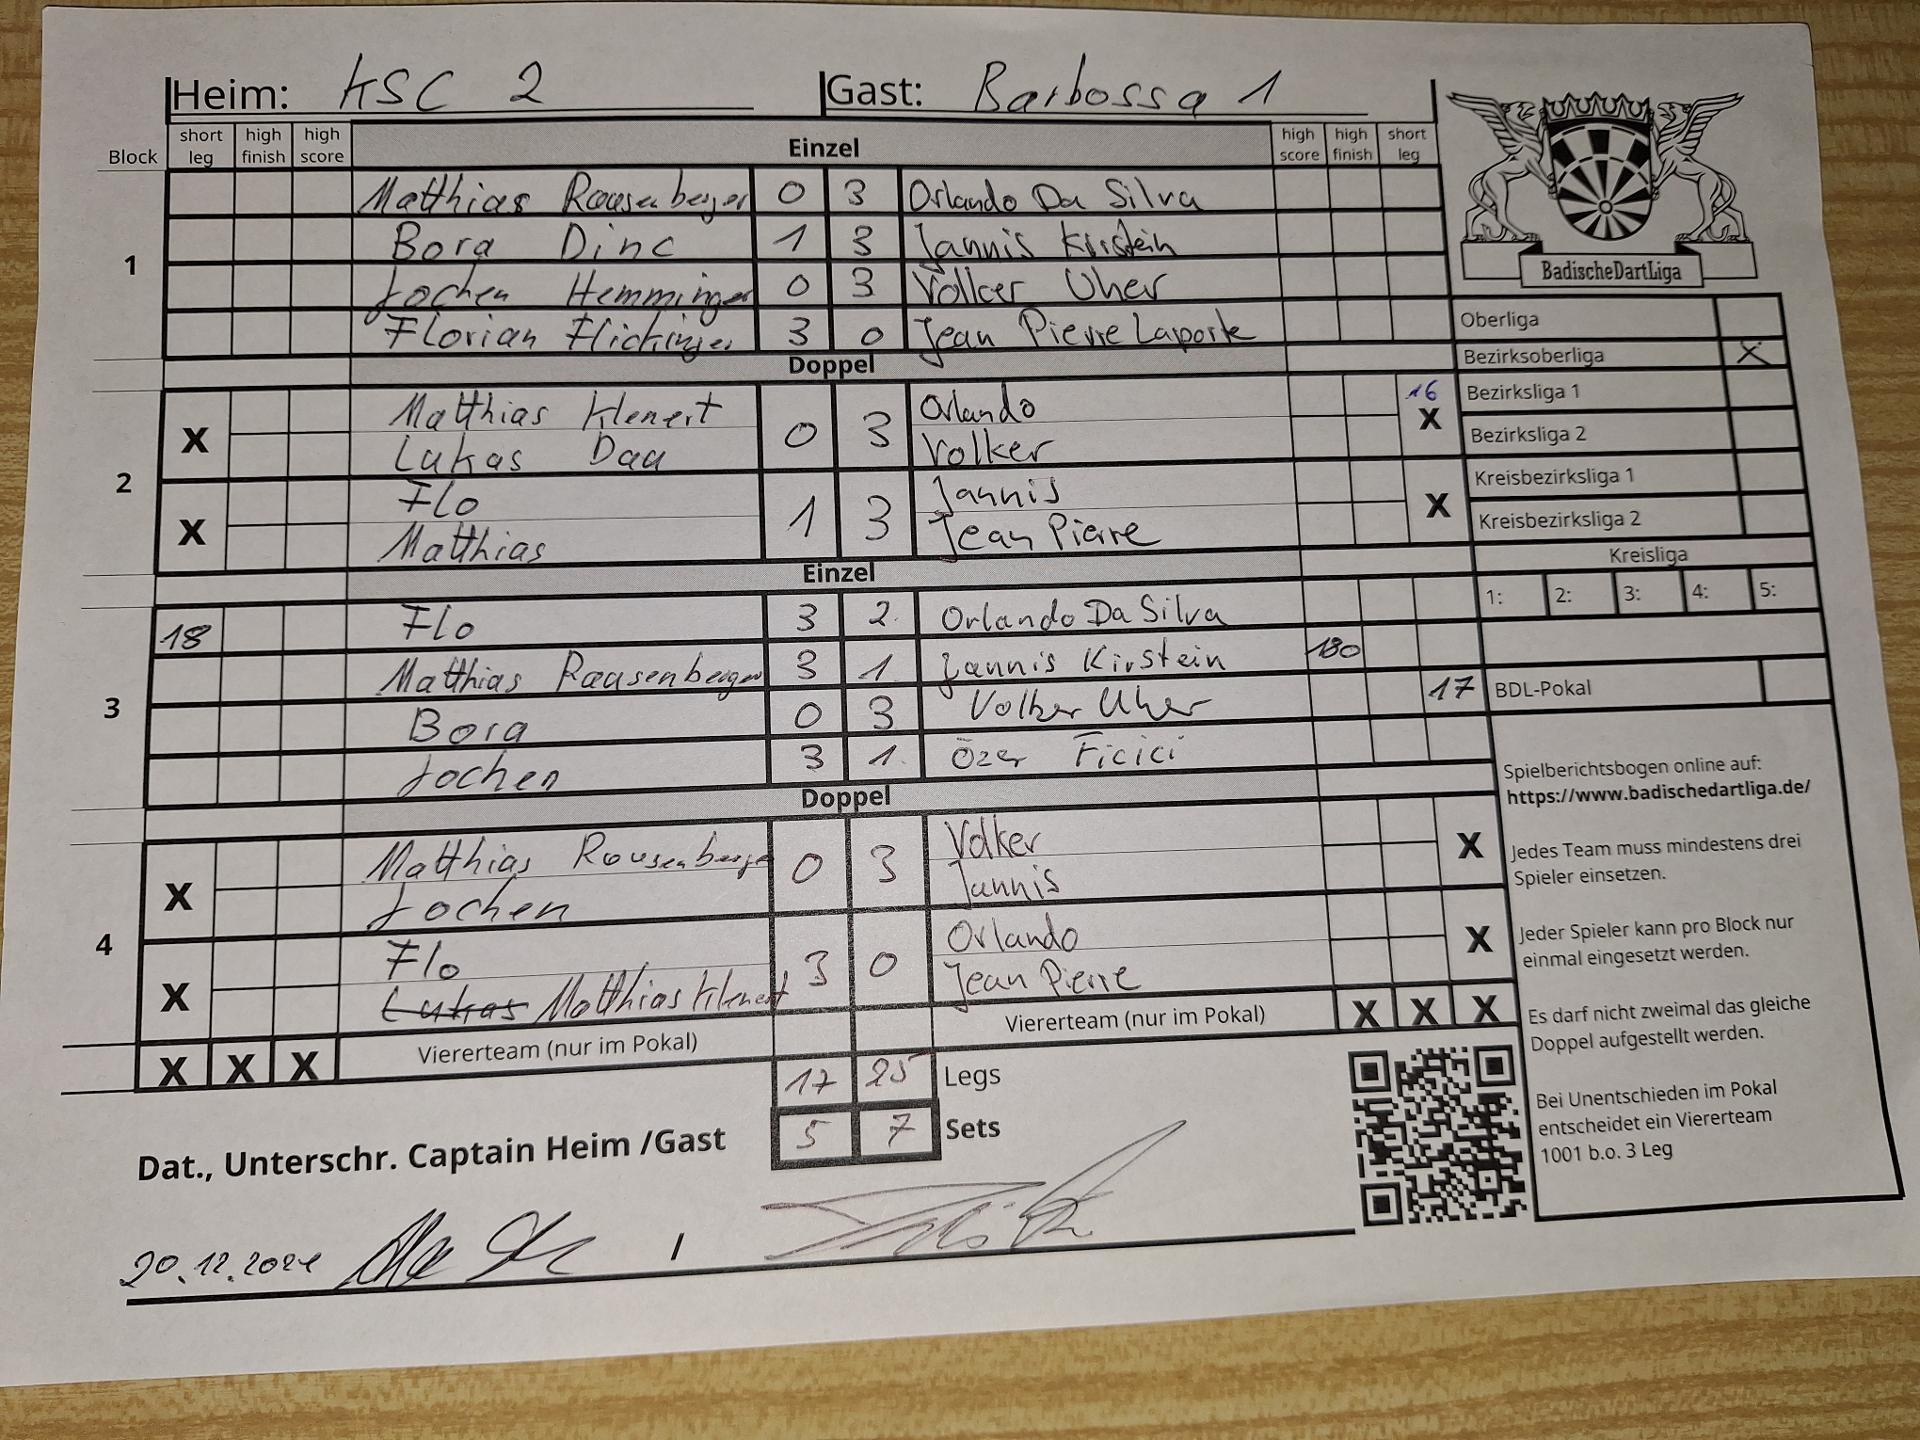 Heim: KSC 2 Gast: Barbossa 1
Block short leg high finish high score Einzel high score high finish short leg
1
Matthias Rausenberger 0 3 Orlando Da Silva
Bora Dinc 1 3 Jannis Kirstein
Jochen Hemminger 0 3 Volker Uher
Florian Flickinger 3 0 Jean Pierre Laporte
Doppel
2
X Matthias Klenert 0 3 Orlando 16 X
Lukas Daa Volker
X Flo 1 3 Jannis X
Matthias Jean Pierre
Einzel
3
18 Flo 3 2 Orlando Da Silva
Matthias Rausenberger 3 1 Jannis Kirstein 180
Bora 0 3 Volker Uher 17
Jochen 3 1 Özer Ficici
Doppel
4
X Matthias Rausenberger 0 3 Volker X
Jochen Jannis
X Flo 3 0 Orlando X
Lukas Matthias Klenert Jean Pierre
X X X Viererteam (nur im Pokal) Viererteam (nur im Pokal) X X X
17 25 Legs
5 7 Sets
Dat., Unterschr. Captain Heim /Gast
20.12.2024 /
BadischeDartLiga
Oberliga
Bezirksoberliga X
Bezirksliga 1
Bezirksliga 2
Kreisbezirksliga 1
Kreisbezirksliga 2
Kreisliga
1: 2: 3: 4: 5:
BDL-Pokal
Spielberichtsbogen online auf:
https://www.badischedartliga.de/
Jedes Team muss mindestens drei
Spieler einsetzen.
Jeder Spieler kann pro Block nur
einmal eingesetzt werden.
Es darf nicht zweimal das gleiche
Doppel aufgestellt werden.
Bei Unentschieden im Pokal
entscheidet ein Viererteam
1001 b.o. 3 Leg